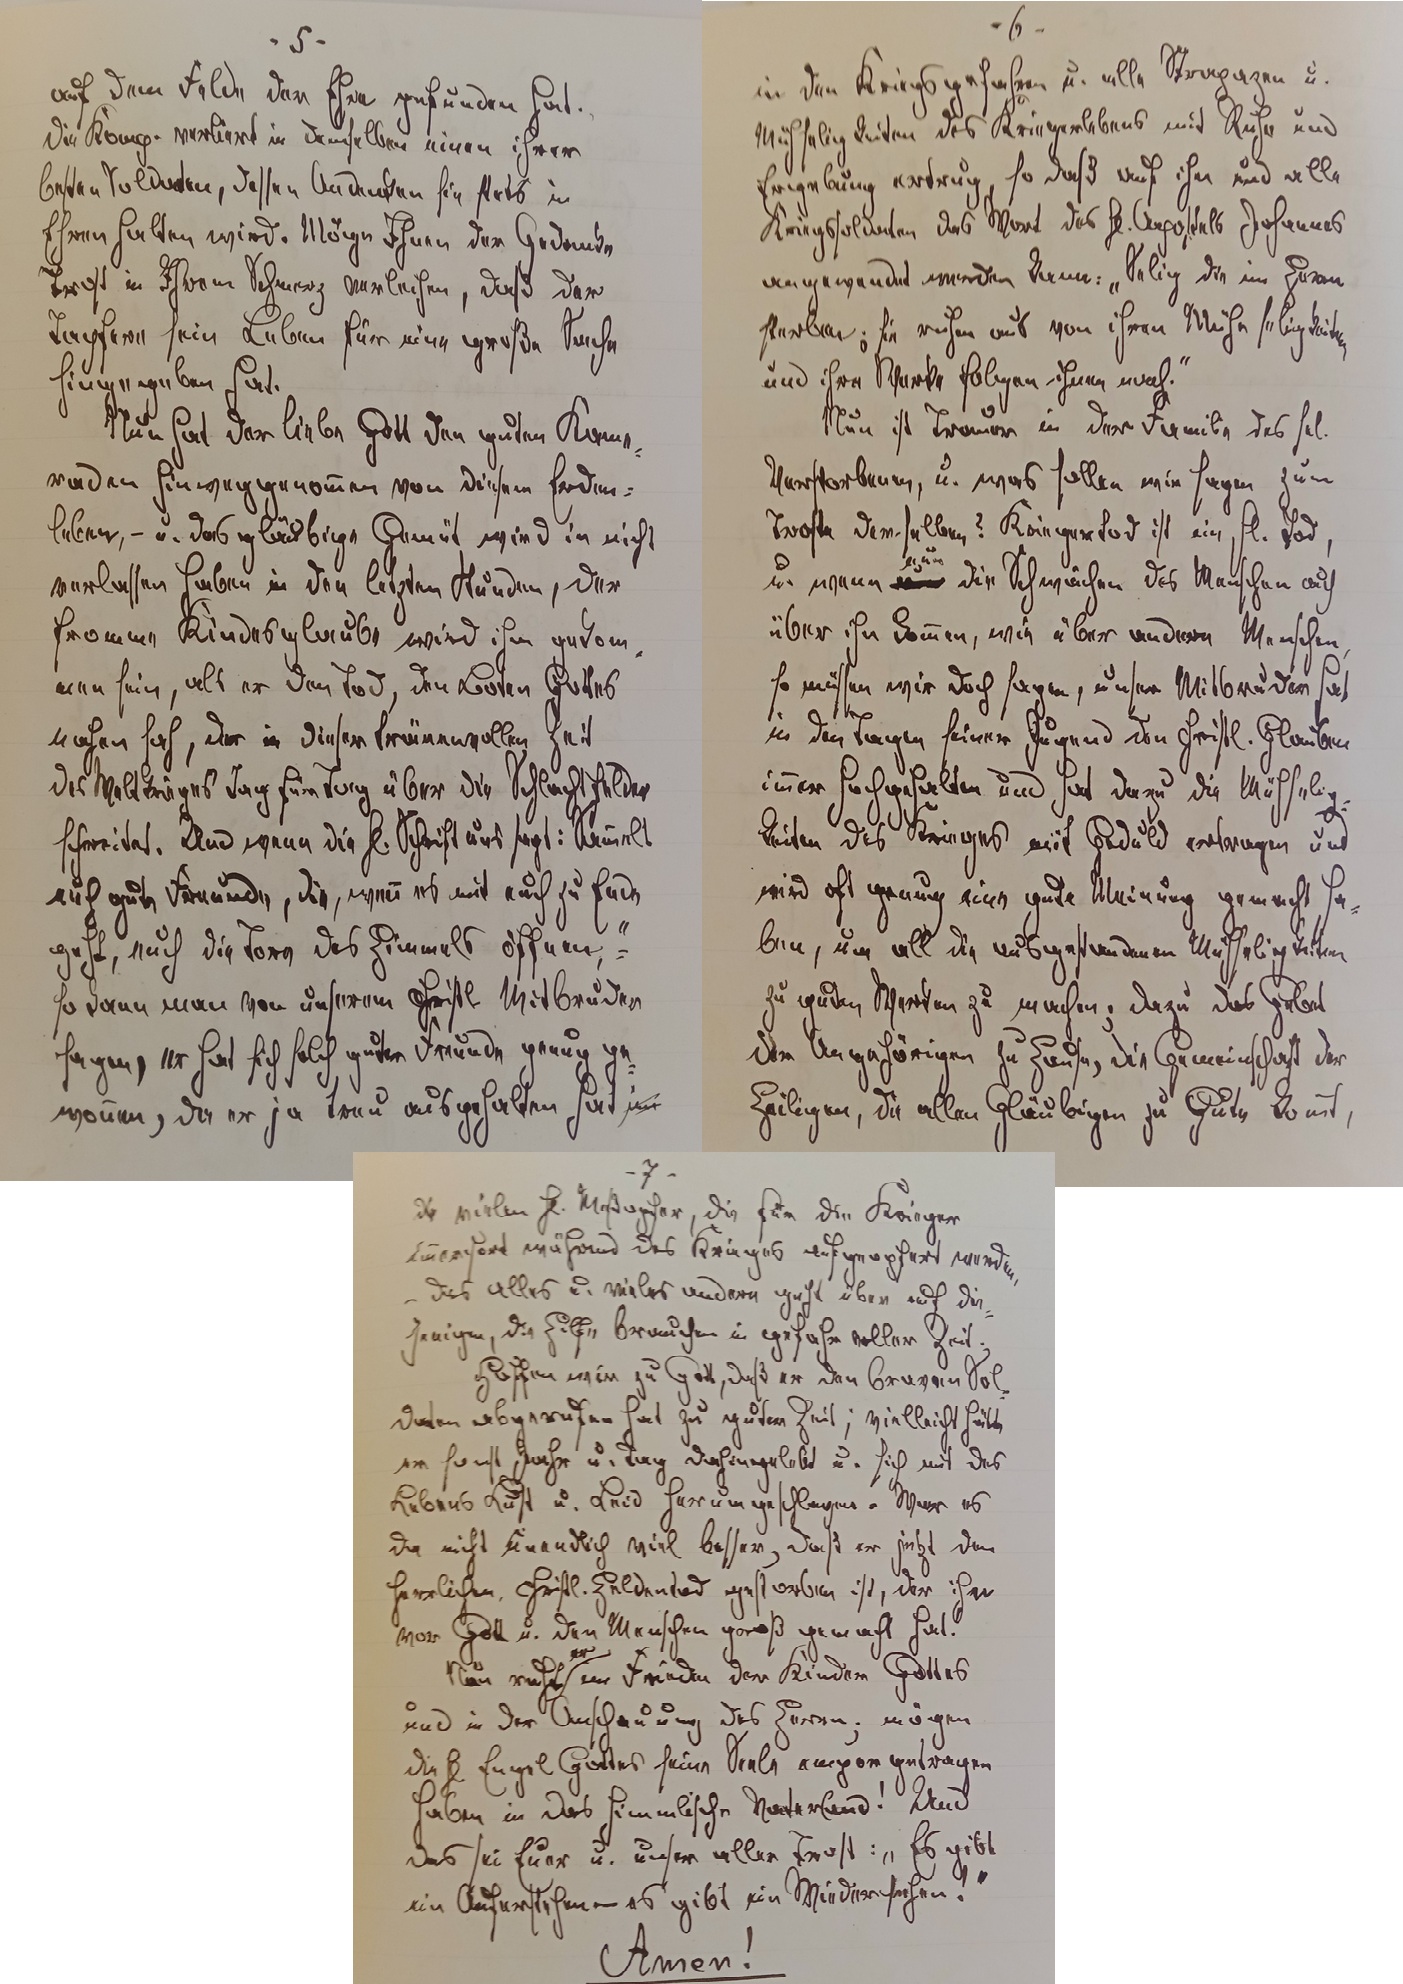 - 5 -
auf dem Felde der Ehre gefunden hat.
Die Komp. verliert in demselben einen ihrer
besten Soldaten, dessen Andenken sie stets in
Ehren halten wird. Möge Ihnen der Gedanke
Trost in Ihrem Schmerz verleihen, daß der
Tapfere sein Leben für eine große Sache
hingegeben hat.
Nun hat der liebe Gott den guten Kame-
raden hinweggenom̅en von diesem Erden-
leben, - u. das gläubige Gemüt wird ihn nicht
verlassen haben in den letzten Stunden, der
fromme Kindesglaube wird ihm gekom-
men sein, als er den Tod, den Boten Gottes
nahen sah, der in dieser tränenvollen Zeit
des Weltkrieges Tag für Tag über die Schlachtfelder
schreitet. Und wenn die hl. Schrift uns sagt: Sam̅elt
euch gute Freunde, die, wen̅ es mit euch zu Ende
geht, euch die Tore des Himmels öffnen,"
so kann man von unserem christl Mitbruder
sagen, er hat sich solch guter Freunde genug ge-
won̅en, da er ja treu ausgehalten hat
- 6 -
in den Kriegsgefahren u. alle Strapazen u.
Mühseligkeiten des Kriegerlebens mit Ruhe und
Ergebung ertrug, so daß auf ihn und alle
Kriegssoldaten das Wort des hl. Apostels Johannes
angewendet werden kann: „Selig die im Herrn
sterben; sie ruhen aus von ihren Mühseligkeiten,
und ihre Werke folgen ihnen nach."
Nun ist Trauer in der Familie des sel.
Verstorbenen, u. was sollen wir sagen zum
Troste derselben? Kriegertod ist ein hl. Tod,
u. wenn die Schwächen des Menschen auch
über ihn kom̅en, wie über andere Menschen,
so müssen wir doch sagen, unser Mitbruder hat
in den Tagen seiner Jugend den christl. Glauben
im̅er hochgehalten und hat dazu die Mühselig-
keiten des Krieges mit Geduld ertragen und
wird oft genug eine gute Meinung gemacht ha-
ben, um all die ausgestandenen Mühseligkeiten
zu guten Werken zu machen; dazu das Gebet
der Angehörigen zu Hause, die Gemeinschaft der
Heiligen, die allen Gläubigen zu Gute kom̅t,
- 7 -
die vielen hl. Meßopfer, die für die Krieger
im̅erfort während des Krieges aufgeopfert werden,
- das alles u. vieles andere geht über auf die-
jenigen, die Hilfe brauchen in gefahrvoller Zeit.
Hoffen wir zu Gott, daß er den braven Sol-
daten abgerufen hat zu guter Zeit; vielleicht hätte
er sonst Jahr u. Tag dahingelebt u. sich mit des
Lebens Lust u. Leid herumgeschlagen. War es
da nicht unendlich viel besser, daß er jetzt den
herrlichen, christl. Heldentod gestorben ist, der ihn
vor Gott u. den Menschen groß gemacht hat.
Nun ruht er im Frieden der Kinder Gottes
und in der Anschauung des Herrn; mögen
die hl Engel Gottes seine Seele empor getragen
haben in das himmlische Vaterland! Und
das sei Euer u. unser aller Trost: „Es gibt
ein Auferstehen - es gibt ein Wiedersehen!"
Amen!